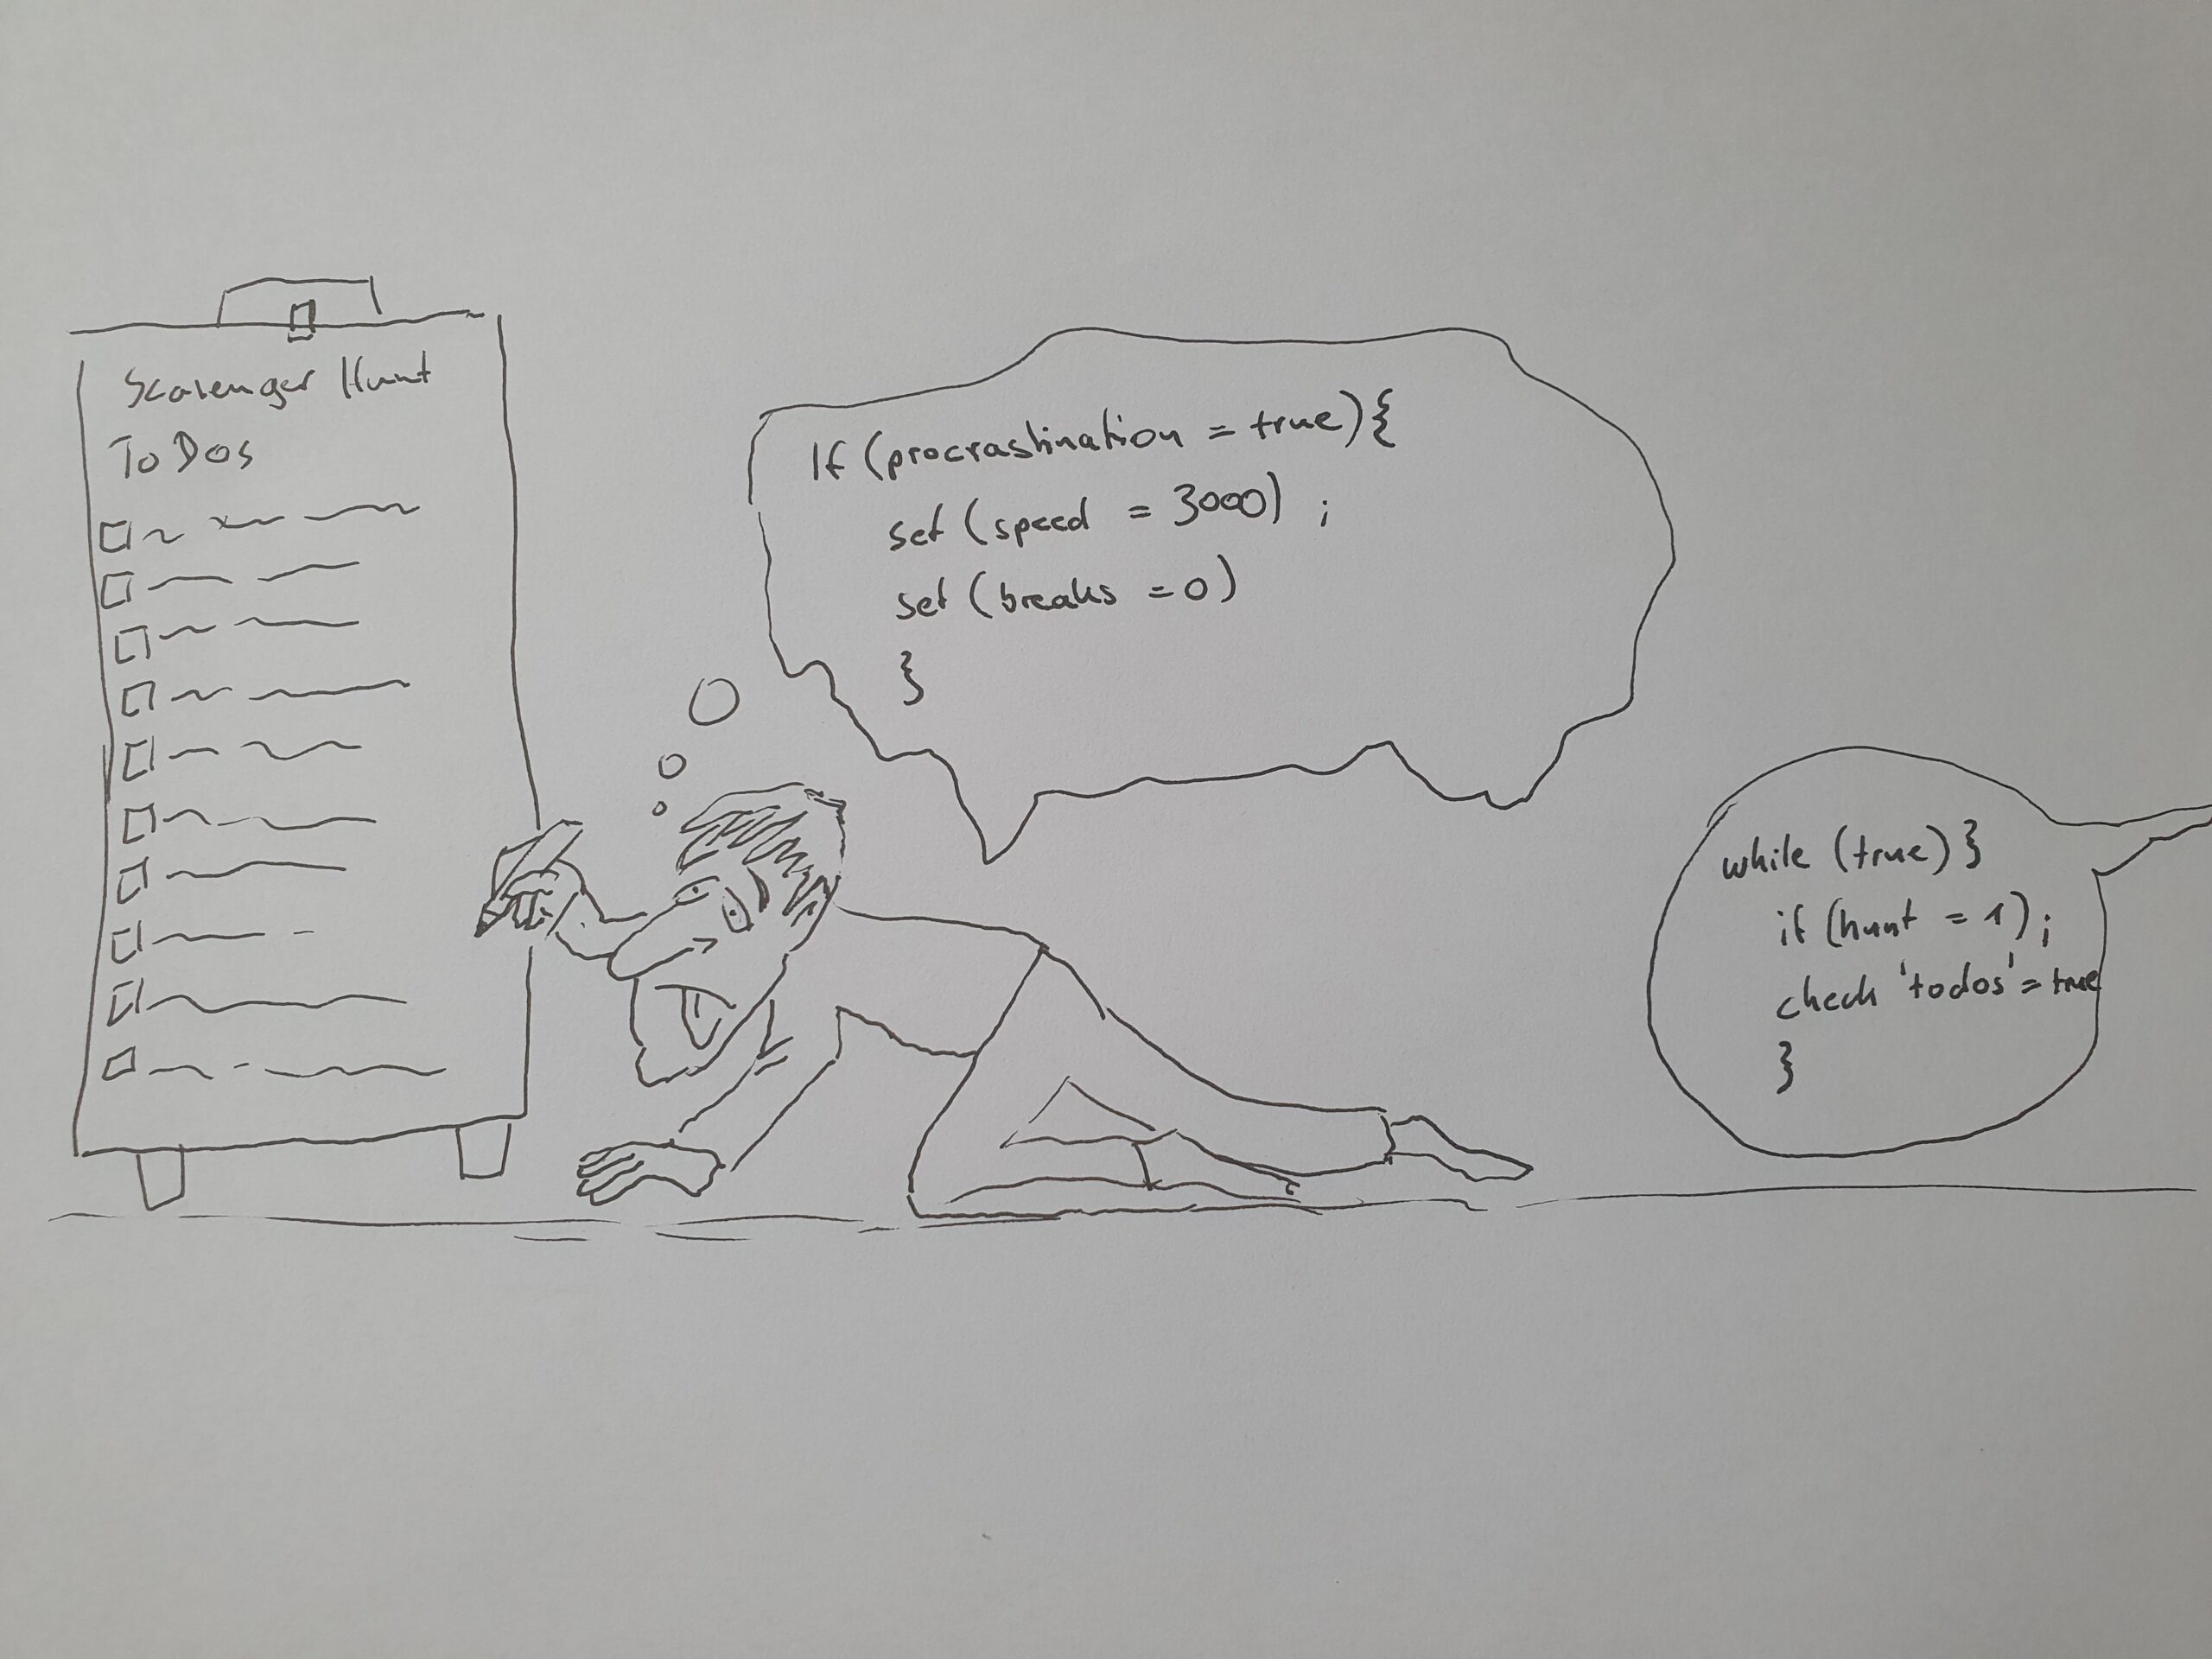 Scavenger Hunt
ToDos
If (procrastination = true) {
set (speed = 3000) ;
set (breaks = 0)
}
while (true) }
if (hunt = 1) ;
check 'todos' = true
}